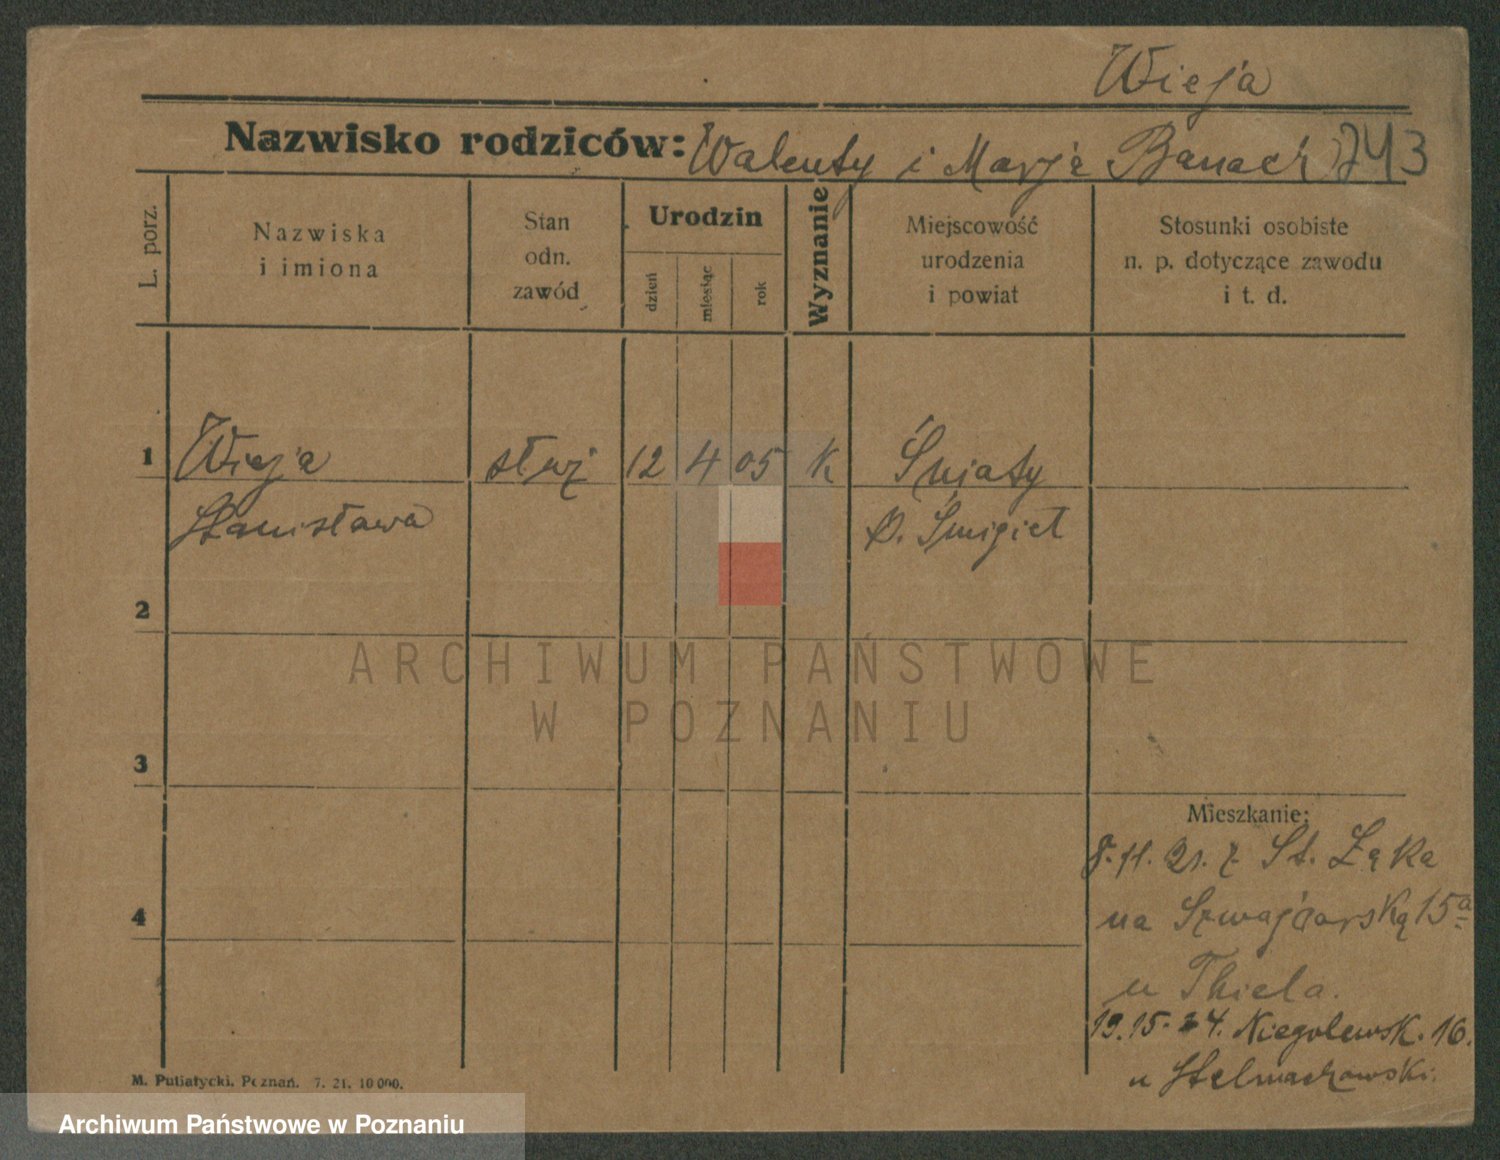 Wieja
Nazwisko rodziców: Walenty i Marja Banach 743
L. porz.
Nazwiska
i imiona
Stan
odn.
zawód
Urodzin
dzień
miesiąc
rok
Wyznanie
Miejscowość
urodzenia
i powiat
Stosunki osobiste
n. p. dotyczące zawodu
i t. d.
1 Wieja służ 12 4 05 K Śniaty
Stanisława p. Śmigiel
2
ARCHIWUM PAŃSTWOWE
W POZNANIU
3
Mieszkanie:
8.11.21. z St. Łąka
4
na Szwajcarską 15a
u Thiela.
Niegolewsk. 16.
u Stelmachowski.
M. Putiatycki. Poznań. 7. 21. 10 000.
Archiwum Państwowe w Poznaniu